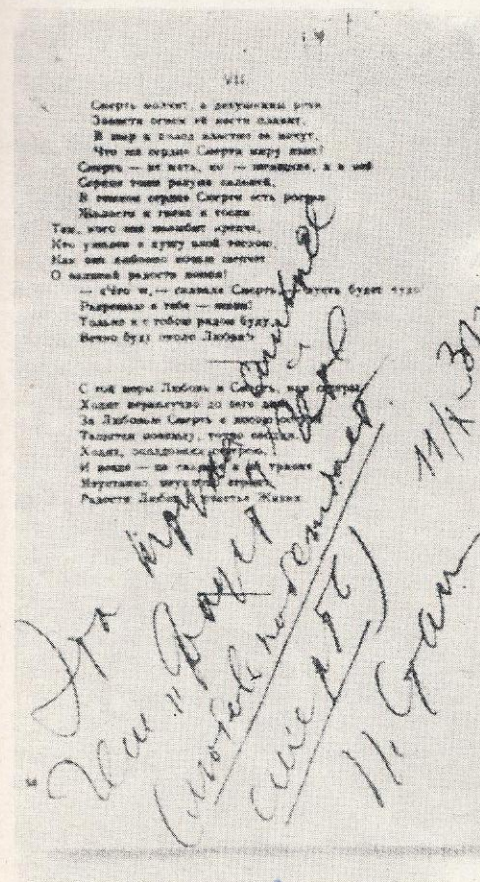 VII
Смерть молчит, а девушкины речи
Зависти огнем ей кости плавят,
В жар и холод властно ее мечут,
Что же сердце Смерти миру явит?
Смерть — не мать, но — женщина, и в ней
Сердце тоже разума сильней,
В темном сердце Смерти есть ростки
Жалости и гнева и тоски
Тем, кого она полюбит крепче,
Кто ужален в душу злой тоскою,
Как она любовно ночью шепчет
О великой радости покоя!
— «Что ж,— сказала Смерть,— пусть будет чудо!
Разрешаю я тебе — живи!
Только я с тобою рядом буду,
Вечно буду около Любви!»
С той поры Любовь и Смерть, как сестры
Ходят неразлучно до сего дня
За Любовью Смерть с косою
Тащится повсюду, точно сводня.
Ходит, околдована сестрою,
И везде — на свадьбе и на тризне
Неустанно, неуклонно строит
Радости Любви и счастье Жизни
Эта штука сильнее
чем "Фауст" Гёте
(любовь побеждает
смерть)
И. Стали
11/X 31